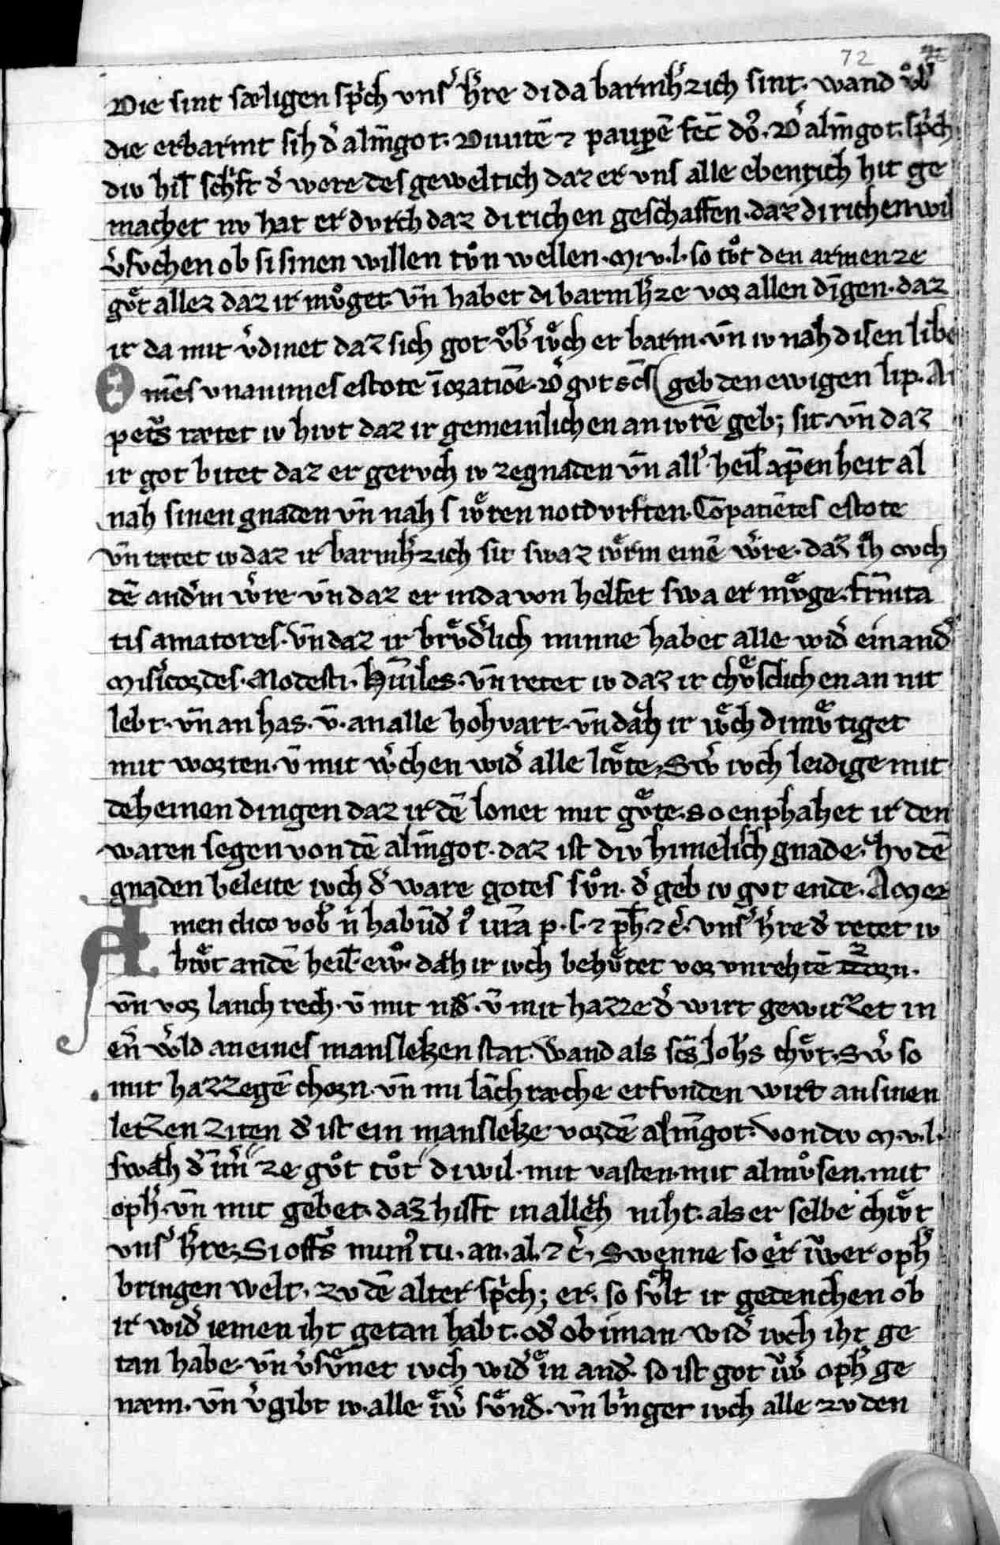 72
Die sint sæligen sp̄ch vnsˀ hˀre di da barmhˀzich sint. wand v̊bˀ
die erbarmt sih dˀ alm̄got. Diuitē ⁊ paupē fec̄ dō. Dˀ alm̄got. sp̄ch
div hil̄ schˀft dˀ were des geweltich daz er vns alle ebenrich hit ge
machet nv hat er dvrch daz di richen geschaffen. daz di richen wil
vˀsvchen ob si sinen willen tv̊n wellen. M. v. l. so tv̊t den armen ze
gv̊t allez daz ir mv̊get. vn̄ habet di barmhˀze vor allen dīgen. daz
ir da mit vˀdinet daz sich got v̊bˀ iv̊ch er barm. vn̄ iv nah disen libe
Om̄es vnanimes estote ī oratiōe. Dˀ gvt sc̄s geb den ewigen lip. Am̄
petˀs rætet iv hivt daz ir gemeinlichen an iwrē geb; sit. vn̄ daz
ir got bitet daz er gervch iv ze gnaden vn̄ allˀ. heil̄ xp̄enheit al
nah sinen gnaden vn̄ nah iwˀren notdvrften. Cōpatiētes estote
vn̄ rætet iv daz ir barmhˀzich sit swaz iwˀrm einē wˀre. daz ih ovch
dē andˀm wˀre vn̄ daz er im da von helfet swa er mv̊ge. frn̄ita
tis amatores. vn̄ daz ir brv̊dˀlich minne habet alle widˀ einandˀ
Misˀicordes. Modesti. Hūiles. vn̄ retet iv daz ir chv̊schlichen an nit
lebt. vn̄ an has. v̄. an alle hohvart. vn̄ dah ir iv̊ch dimv̊tiget
mit worten. v̄ mit wˀchen widˀ alle livte, Swˀ ivch leidige mit
deheinen dingen daz ir dē lonet mit gv̊te. so enphahet ir den
waren segen von dē alm̄got. daz ist div himelisch gnade. zv dē
gnaden beleite ivch dˀ ware gotes sv̊n. dˀ geb iv got ende. Amen
Amen dico vob̄ n̄ habūdˀ iˀ iur̄a p. s. ⁊ ph̄. ⁊ c̄. vnsˀ hˀre dˀ retet iv
hivt an dē heil̄. eẘ. dah ir ivch behv̊tet vor vnrehtē zorn.
vn̄ vor lanch rech. v̄ mit nid̄. v̄ mit hazze dˀ wirt gewitzet in
en̄ wˀld an eines mansleken stat. Wand als sc̄s Joh̄s chv̊t. Swˀ so
mit hazzegē chorn. vn̄ mi lāch ræche erfvnden wirt an sinen
letzen ziten dˀ ist ein mansleke vor dē alm̄got. von div m. v. l.
swah dˀ im̄ ze gv̊t tv̊t di wil. mit vasten. mit almv̊sen. mit
ophˀ. vn̄ mit gebet. daz hilft in alleh niht. als er selbe chivt
vnsˀ hˀre, Si offˀs mun̄ tu. an. al. ⁊ c̄, Swenne so ir iwer ophˀ
bringen welt. zv dē alter spˀch; er. so sv̊lt ir gedenchen ob
ir widˀ iemen iht getan habt. odˀ ob iman widˀ ivch iht ge
tan habe. vn̄ vˀsv̊net ivch widˀ ein andˀ. so ist got iwˀ ophˀ ge
næm. vn̄ vˀgibt iv alle iwˀ sv̊ndˀ. vn̄ bˀnget ivch alle zv den